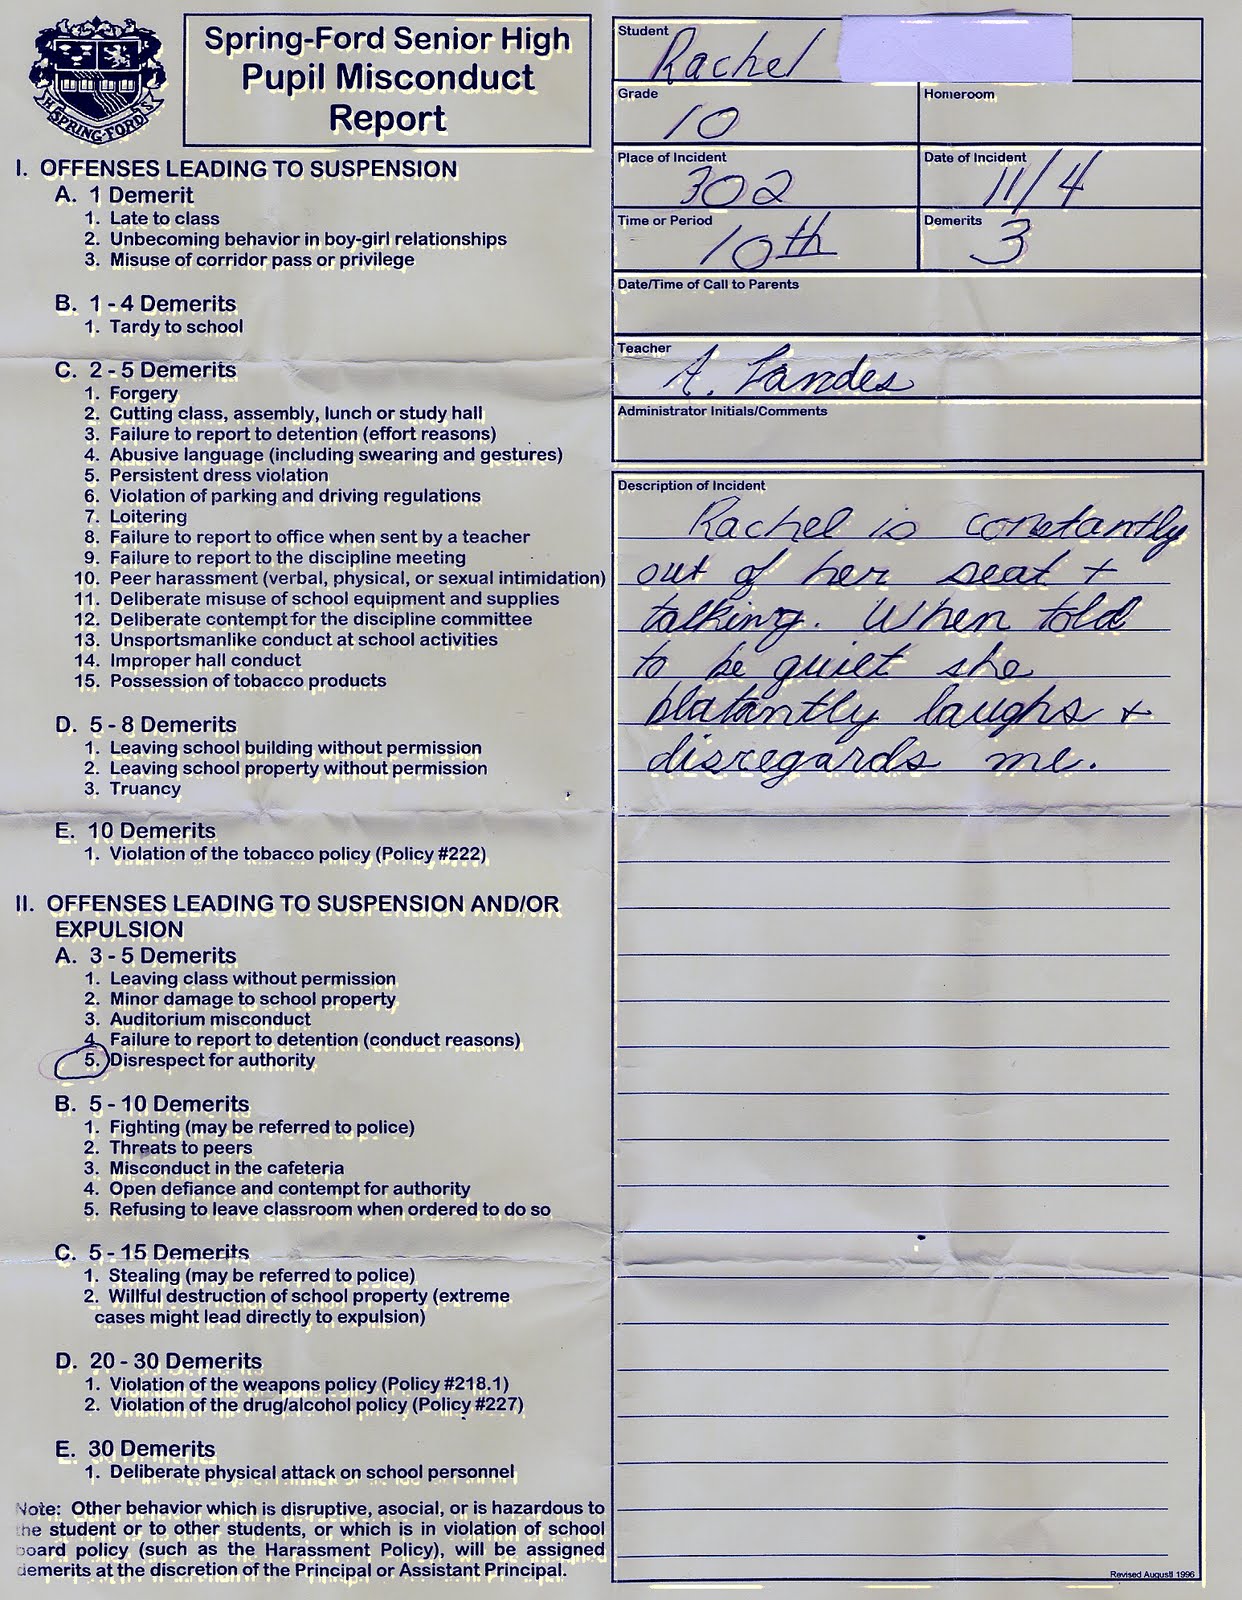 SPRING-FORD
Spring-Ford Senior High
Pupil Misconduct
Report
I. OFFENSES LEADING TO SUSPENSION
A. 1 Demerit
1. Late to class
2. Unbecoming behavior in boy-girl relationships
3. Misuse of corridor pass or privilege
B. 1 - 4 Demerits
1. Tardy to school
C. 2 - 5 Demerits
1. Forgery
2. Cutting class, assembly, lunch or study hall
3. Failure to report to detention (effort reasons)
4. Abusive language (including swearing and gestures)
5. Persistent dress violation
6. Violation of parking and driving regulations
7. Loitering
8. Failure to report to office when sent by a teacher
9. Failure to report to the discipline meeting
10. Peer harassment (verbal, physical, or sexual intimidation)
11. Deliberate misuse of school equipment and supplies
12. Deliberate contempt for the discipline committee
13. Unsportsmanlike conduct at school activities
14. Improper hall conduct
15. Possession of tobacco products
D. 5 - 8 Demerits
1. Leaving school building without permission
2. Leaving school property without permission
3. Truancy
E. 10 Demerits
1. Violation of the tobacco policy (Policy #222)
II. OFFENSES LEADING TO SUSPENSION AND/OR
EXPULSION
A. 3 - 5 Demerits
1. Leaving class without permission
2. Minor damage to school property
3. Auditorium misconduct
4. Failure to report to detention (conduct reasons)
5. Disrespect for authority
B. 5 - 10 Demerits
1. Fighting (may be referred to police)
2. Threats to peers
3. Misconduct in the cafeteria
4. Open defiance and contempt for authority
5. Refusing to leave classroom when ordered to do so
C. 5 - 15 Demerits
1. Stealing (may be referred to police)
2. Willful destruction of school property (extreme
cases might lead directly to expulsion)
D. 20 - 30 Demerits
1. Violation of the weapons policy (Policy #218.1)
2. Violation of the drug/alcohol policy (Policy #227)
E. 30 Demerits
1. Deliberate physical attack on school personnel
Note: Other behavior which is disruptive, asocial, or is hazardous to
the student or to other students, or which is in violation of school
board policy (such as the Harassment Policy), will be assigned
demerits at the discretion of the Principal or Assistant Principal.
Student
Rachel
Grade
10
Homeroom
Place of Incident
302
Date of Incident
11/4
Time or Period
10th
Demerits
3
Date/Time of Call to Parents
Teacher
A. Landes
Administrator Initials/Comments
Description of Incident
Rachel is constantly
out of her seat +
talking. When told
to be quiet she
blatantly laughs +
disregards me.
Revised August 1996